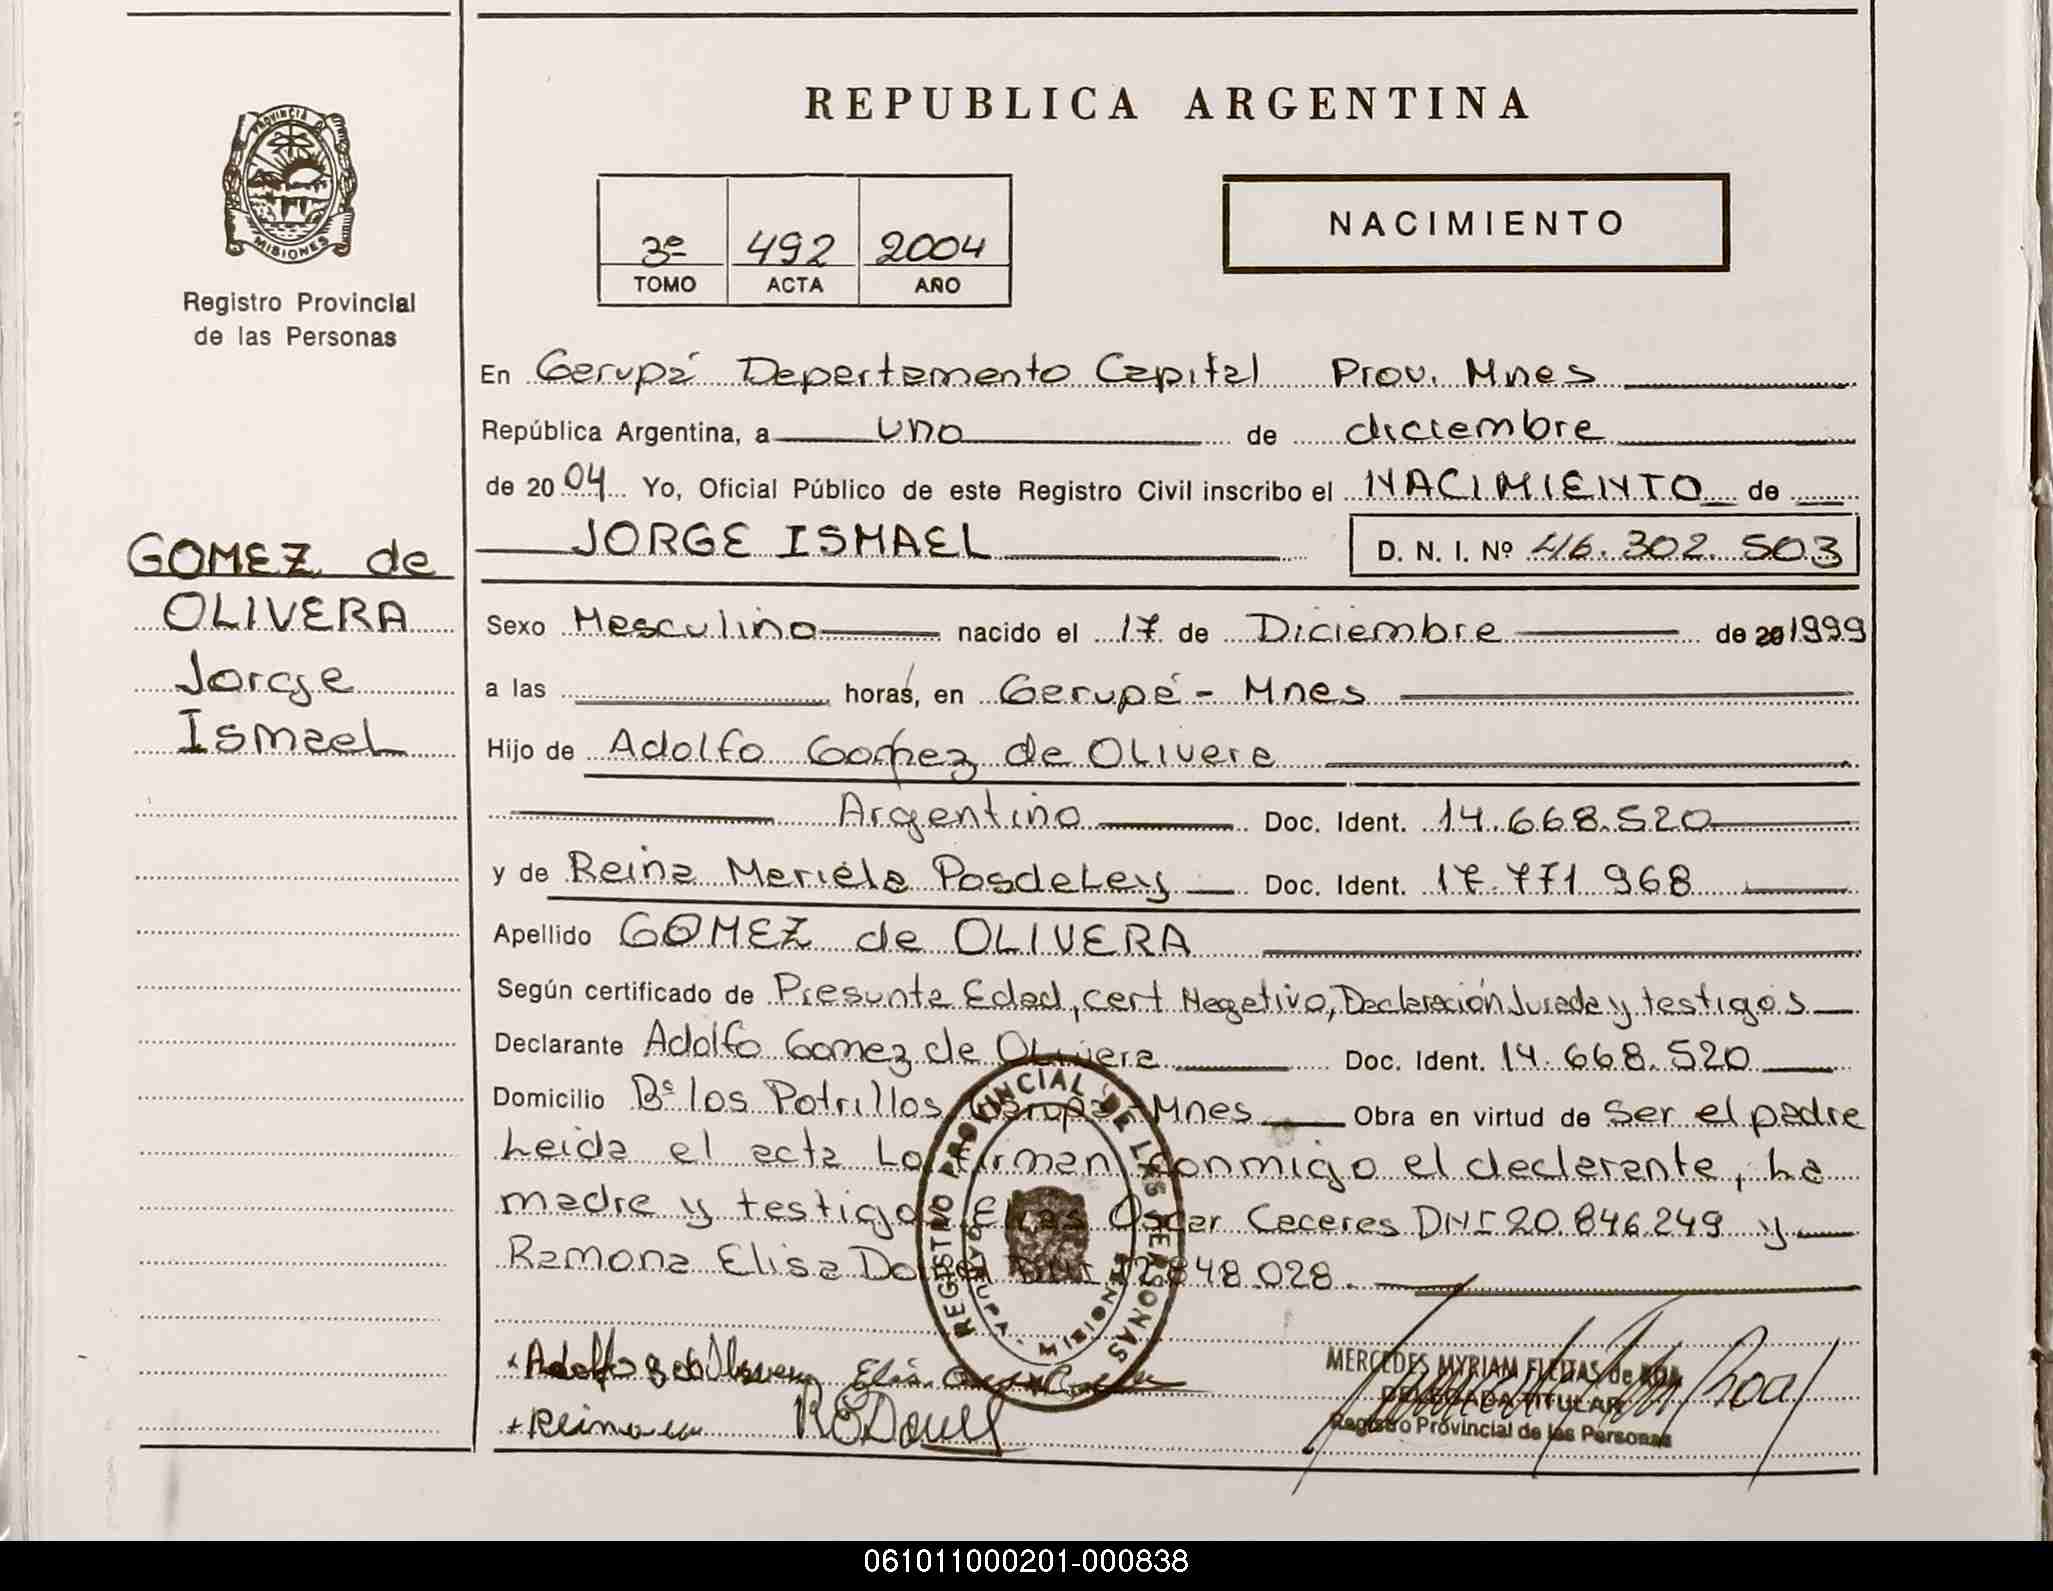 REPUBLICA ARGENTINA
PROVINCIA DE
MISIONES
Registro Provincial
de las Personas
3º 492 2004
TOMO ACTA AÑO
NACIMIENTO
En Garupá Departamento Capital Prov. Mnes
República Argentina, a uno de diciembre
de 2004 Yo, Oficial Público de este Registro Civil inscribo el NACIMIENTO de
JORGE ISMAEL D. N. I. Nº 46.302.503
GOMEZ de
OLIVERA
Jorge
Ismael
Sexo Masculino nacido el 17 de Diciembre de 1999
a las horas, en Garupá - Mnes
Hijo de Adolfo Gomez de Olivera
Argentino Doc. Ident. 14.668.520
y de Reina Mariela Posdeley Doc. Ident. 17.771.968
Apellido GOMEZ de OLIVERA
Según certificado de Presunta Edad, cert Negativo, Declaración Jurada y testigos
Declarante Adolfo Gomez de Olivera Doc. Ident. 14.668.520
Domicilio Bº los Potrillos Garupá - Mnes Obra en virtud de Ser el padre
Leida el acta La firman conmigo el declarante, La
madre y testigo Elias Oscar Caceres DNI 20.846.249 y
Ramona Elisa DNI 12.848.028.
REGISTRO PROVINCIAL DE LAS PERSONAS
GARUPA - MISIONES
Adolfo
Reina
MERCEDES MYRIAM FLEITAS de ROA
DELEGADA TITULAR
Registro Provincial de las Personas
061011000201-000838